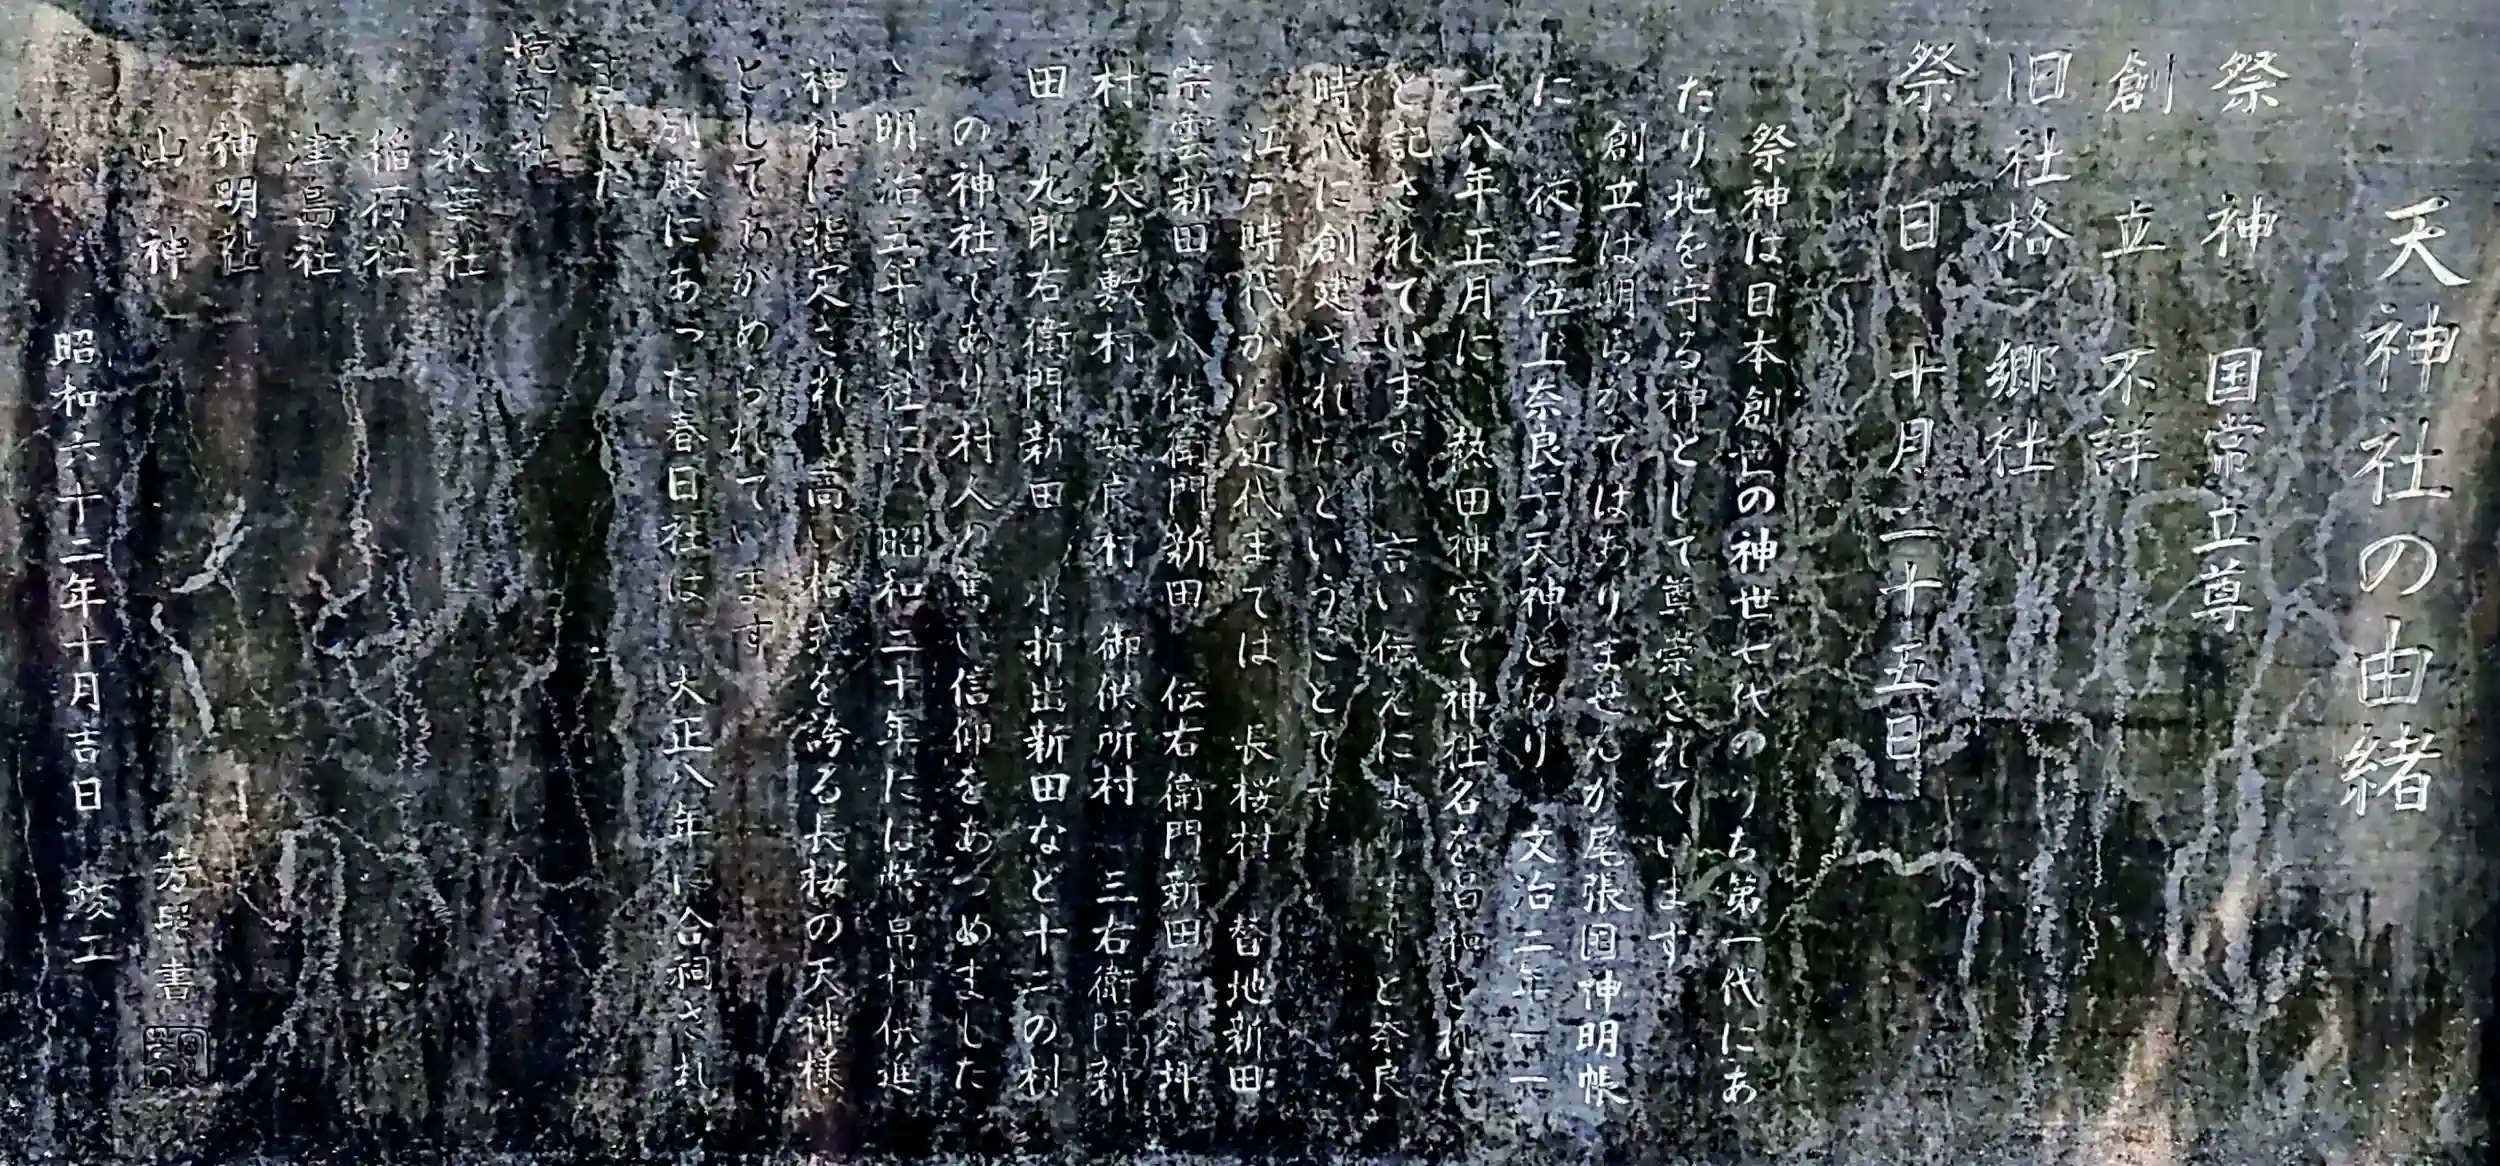 天神社の由緒
祭神 国常立尊
創立 不詳
旧社格 郷社
祭日 十月二十五日
祭神は日本創世の神世七代のうち第一代にあ
たり地を守る神として尊崇されています
創立は明らかではありませんが尾張国神明帳
に 従三位上奈良子天神とあり 文治二年一一
一八年正月に 熱田神宮で神社名を唱和された
と記されています 言い伝えによりますと奈良
時代に創建されたということです
江戸時代から近代までは 長桜村 替地新田
宗雲新田 八佐衛門新田 伝右衛門新田 外坪
村 大屋敷村 安良村 御供所村 三右衛門新
田 九郎右衛門新田 小折出新田など十二の村
の神社であり村人の篤い信仰をあつめました
明治五年郷社に 昭和二十年には幣帛料供進
神社に指定され 高い格式を誇る長桜の天神様
としてあがめられています
別殿にあった春日社は 大正八年に合祠され
ました
境内社
秋葉社
稲荷社
津島社
神明社
山神
芳 書
昭和六十二年十月吉日 竣工